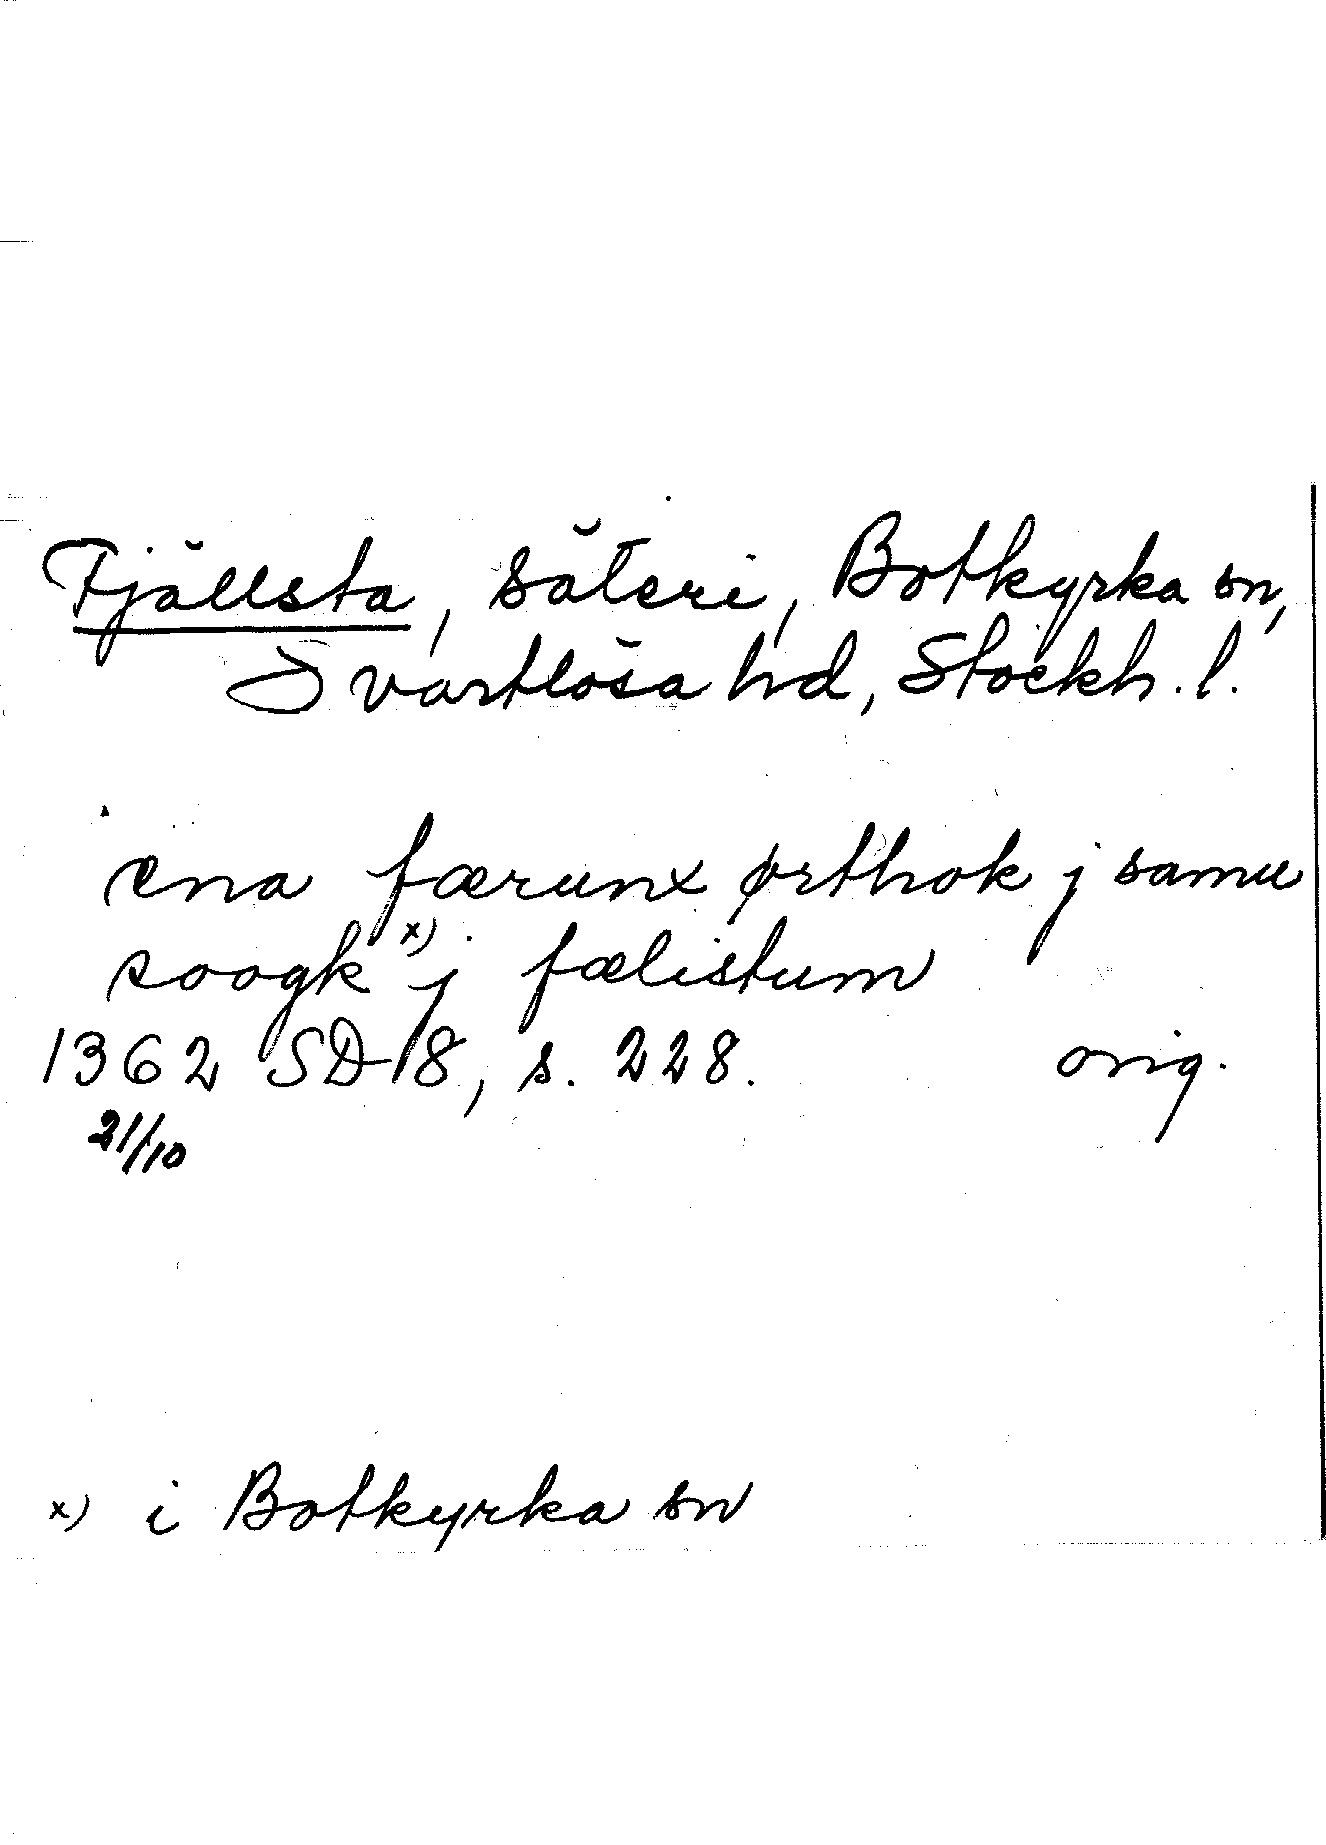 Fjällsta, säteri, Botkyrka sn,
Svartlösa hd, Stockh. l.
ena færunx ørthok j samu
soogk x) j fælistum
1362 SD 8, s. 228. orig.
21/10
x) i Botkyrka sn